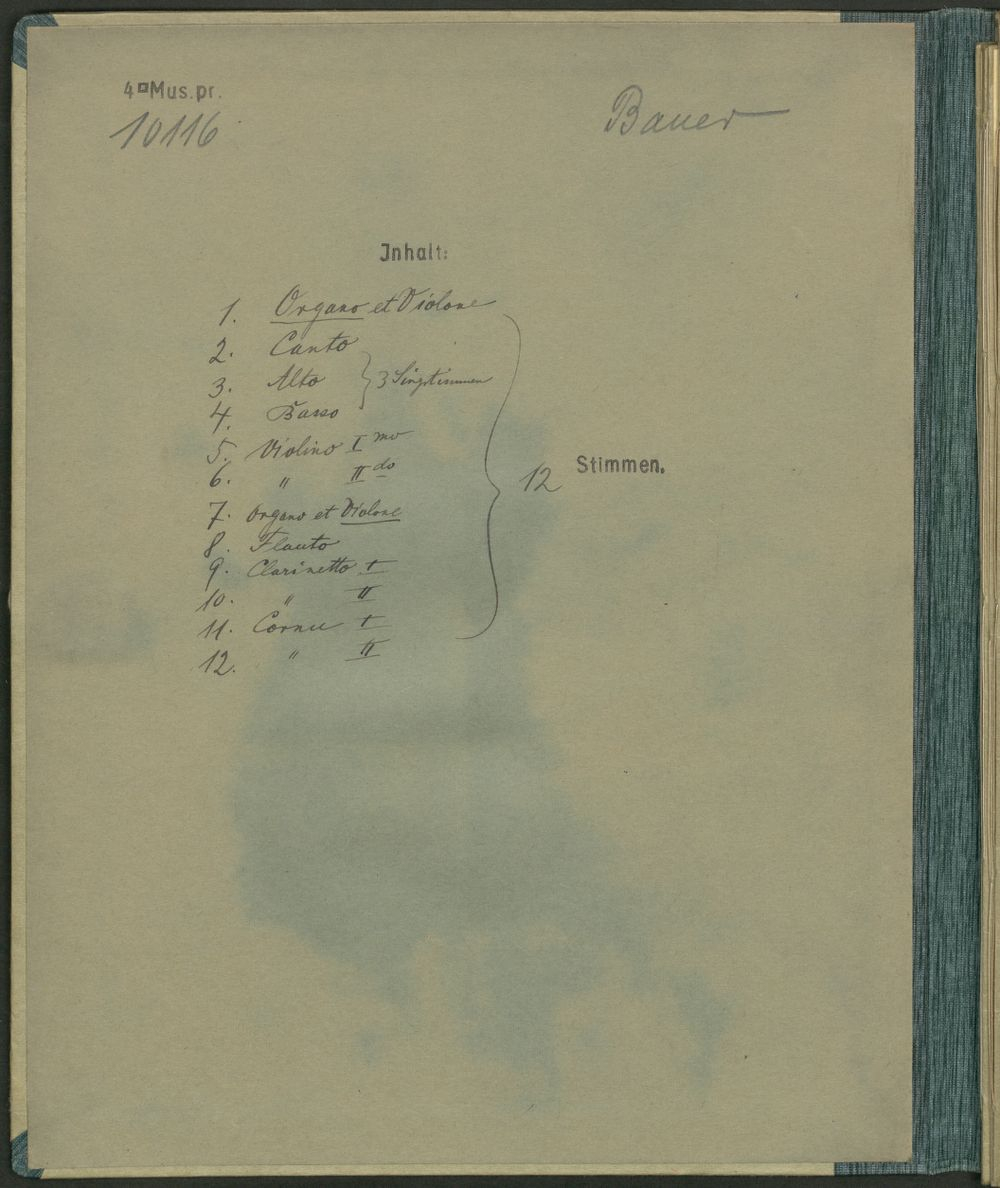 4° Mus.pr.
10116
Bauer
Inhalt:
1. Organo et Violone
2. Canto
3. Alto } 3 Singstimmen
4. Basso
5. Violino I mo
6. " II do
7. Organo et Violone
8. Flauto
9. Clarinetto I
10. " II
11. Cornu I
12. " II
12 Stimmen.